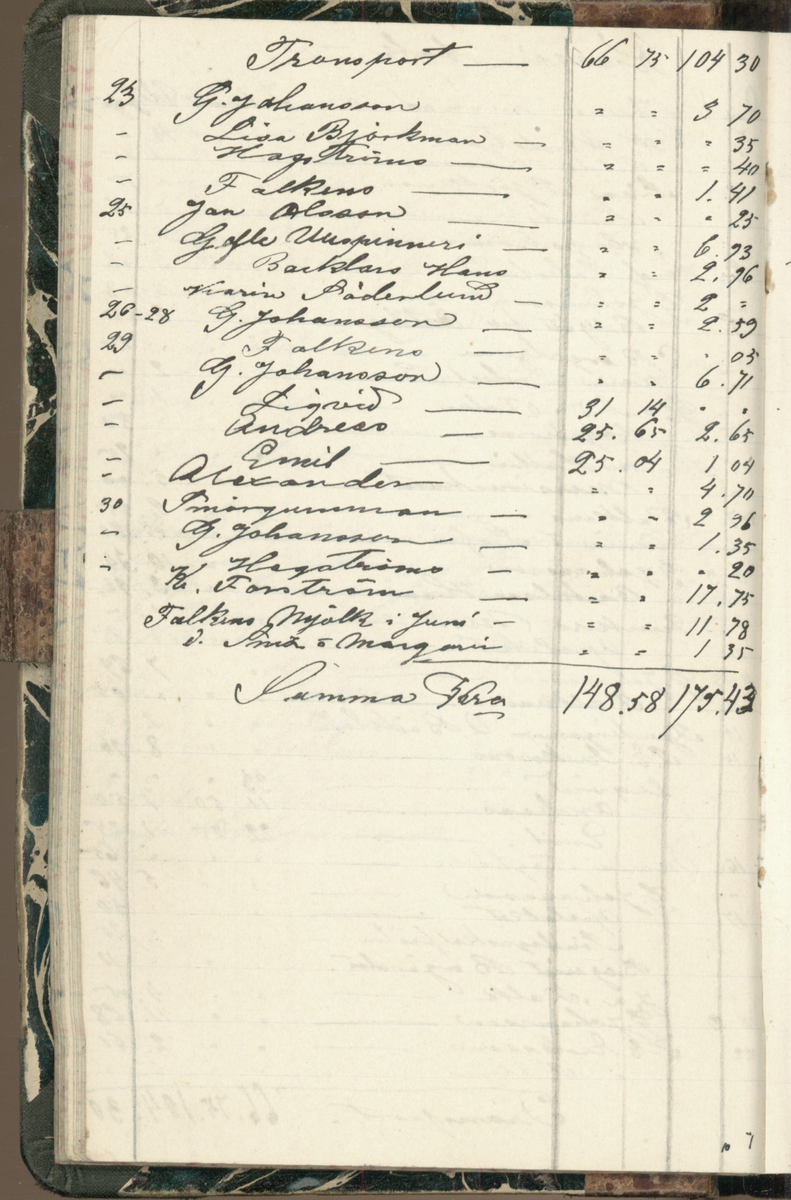 Transport — 66 75 104 30
23 G. Johansson " " 3 70
– Lisa Björkman — " " " 35
– Hagströms — " " " 40
– Falkens — " " 1. 41
25 Jan Olsson — " " " 25
– Gefle — " " 6. 93
– Hans " " 2. 96
– Karin Söderlund — " " 2 "
26-28 G. Johansson — " " 2. 59
29 Falkens — " " " 05
– G. Johansson — " " 6. 71
– Sigvid — 31 14 " "
– Andreas — 25. 65 2. 65
– Emil — 25. 04 1 04
– Alexander " " 4. 70
30 Smörgumman — " " 2 96
– G. Johansson — " " 1. 35
– Hagströms — " " " 20
K. Forström — " " 17. 75
Falkens Mjölk i Juni — " " 11 78
d. Smör o Margarin " " 1 35
Summa Kro 148. 58 175. 43
10 7